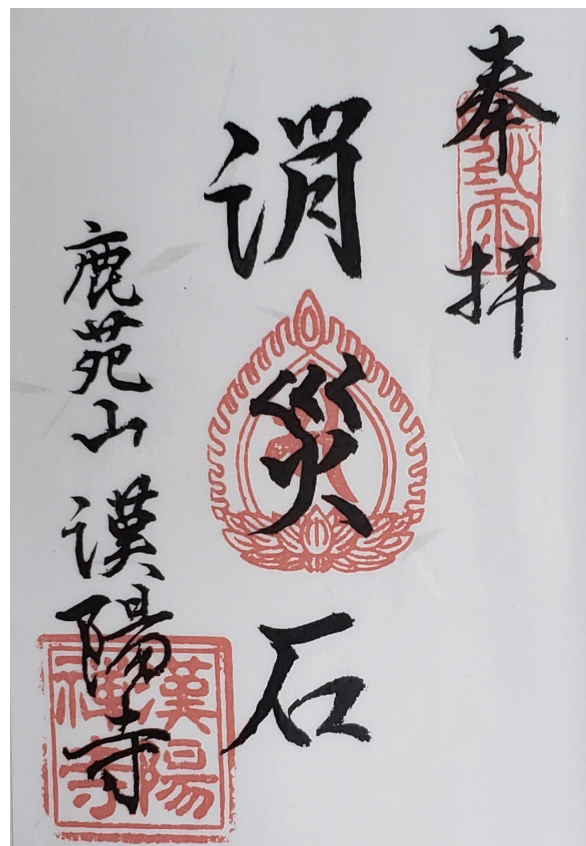 奉拝
消災石
鹿苑山 漢陽寺
漢陽
禅寺